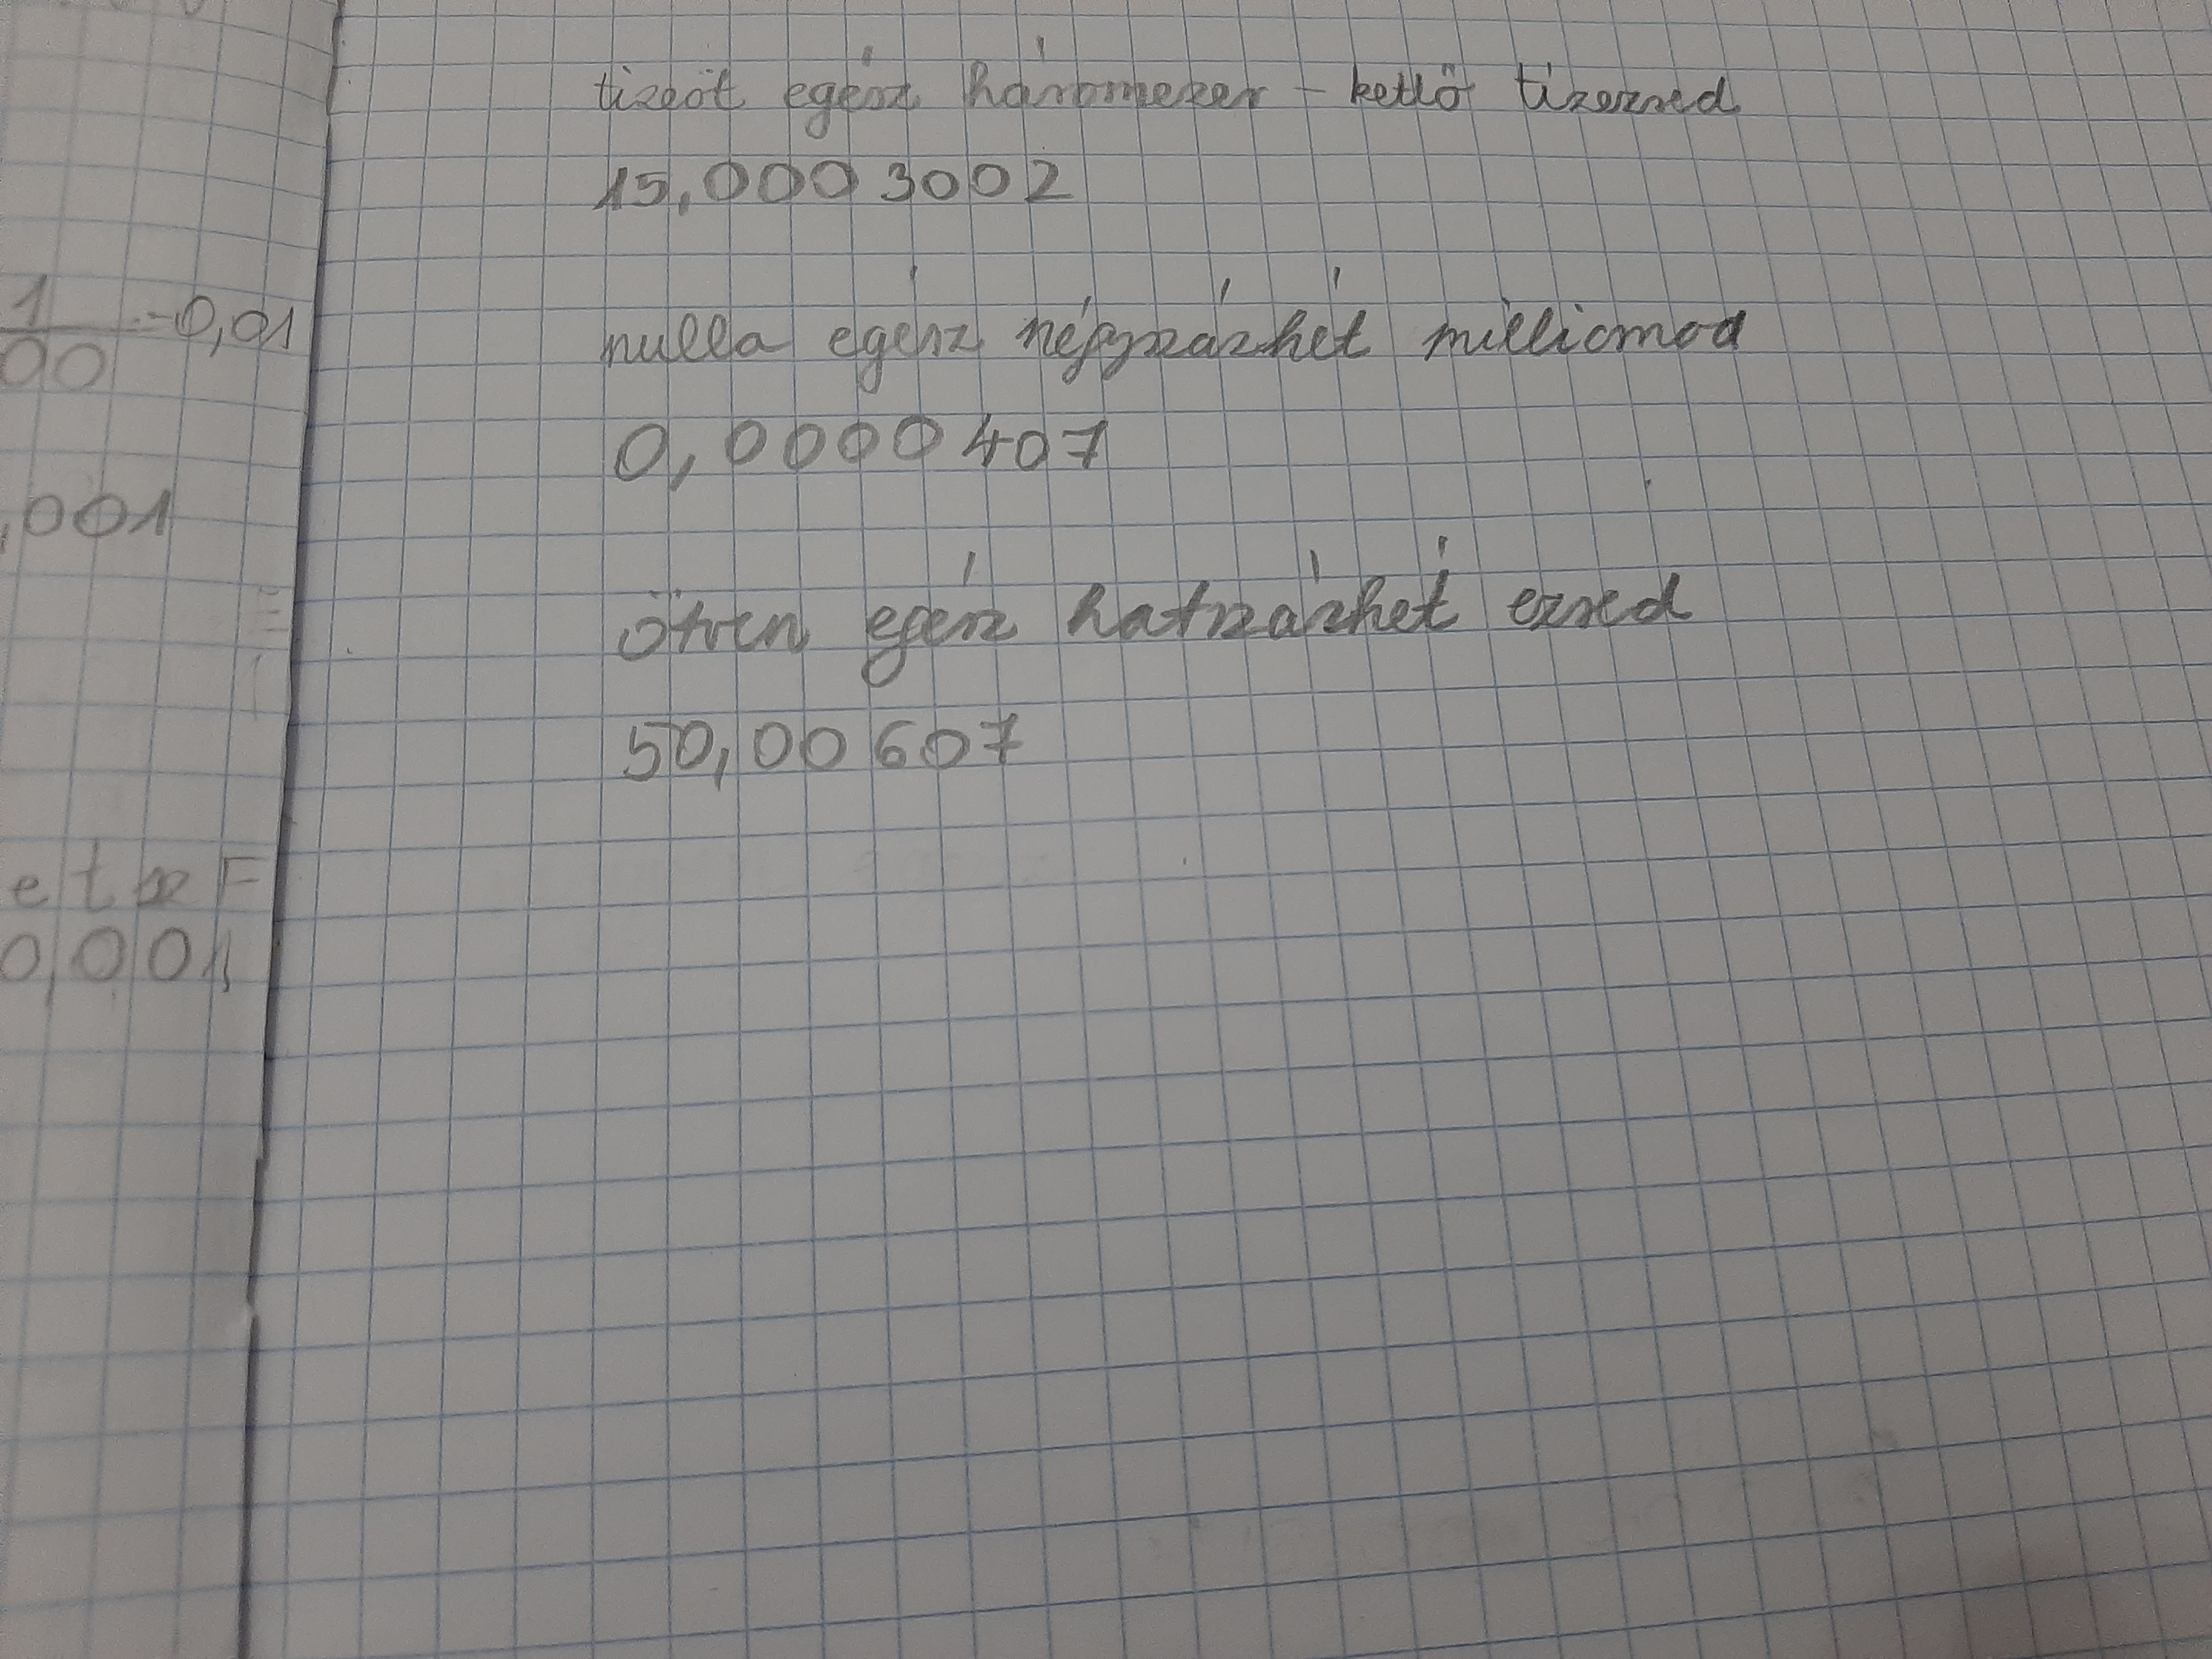 1/00 = 0,01
,001
etxF
0,001
tizenöt egész háromezer - kettő tízezred
15,0003002
nulla egész négyszázhét milliomod
0,0000407
ötven egész hatszázhét ezred
50,00607